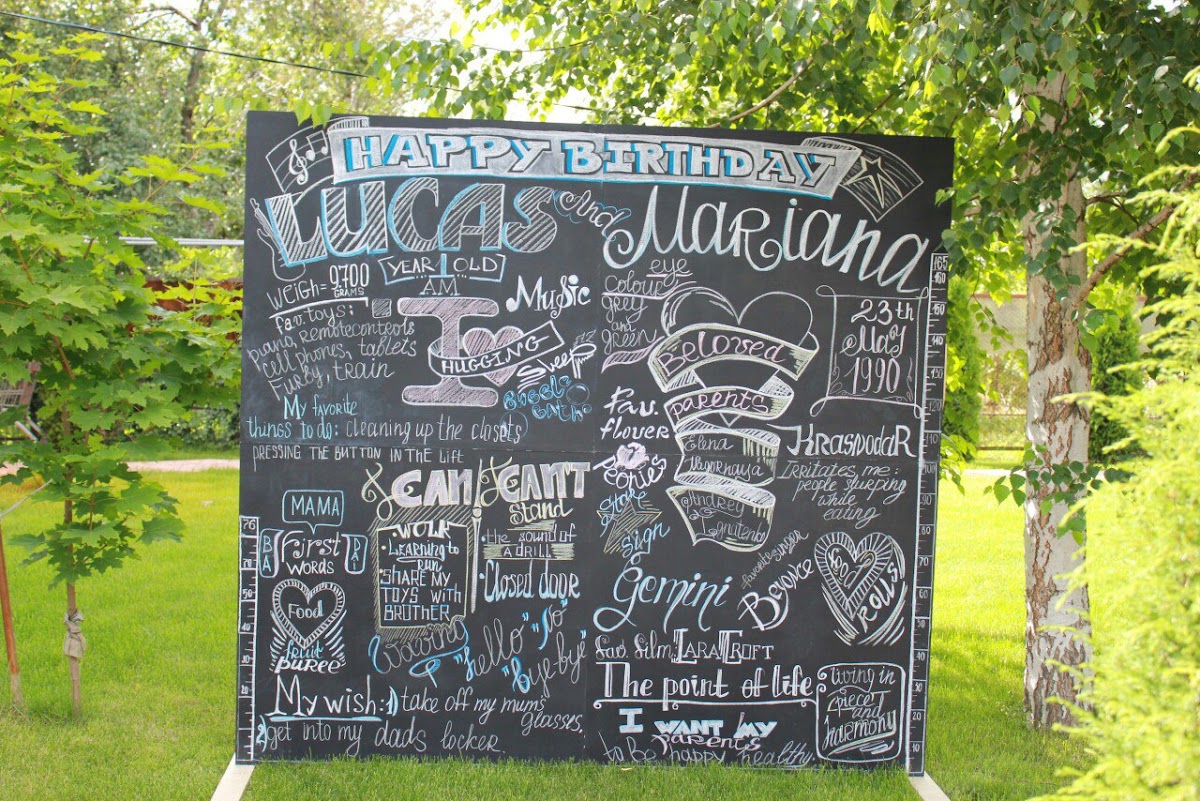 HAPPY BIRTHDAY
LUCAS and Mariana
YEAR 1 OLD
Weigh= 9.700
GRAMS
fav. toys:
piano, remote controls
cell phones, tablets
Furby, train
I AM
HUGGING
Music
Sweet
My favorite
things to do: cleaning up the closets
PRESSING THE BUTTON IN THE LIFT
MAMA
BA
First
WORDS
Food
fruit
puree
76
I CAN
WALK
Learning to
run
SHARE MY
TOYS WITH
BROTHER
I CAN'T
stand
the sound of
A DRILL
Closed door
"hello" "No"
"bye-bye"
My wish: 1) take off my mum's
glasses.
2) get into my dads locker.
eye
Colour
grey
and
green
Beloved
parents
Elena
Andrey
Ignatenko
23th
May
1990
Fav.
flover
Star
sign
Gemini
KRASNODAR
Irritates me:
people slurping
while
eating
favorite singer
Beyonce
Food
Rolls
fav. film: LARA CROFT
The point of life
I WANT MY
parents
to be happy healthy
living in
piece
and
harmony
165
160
150
120
110
100
90
80
70
60
50
40
30
20
10